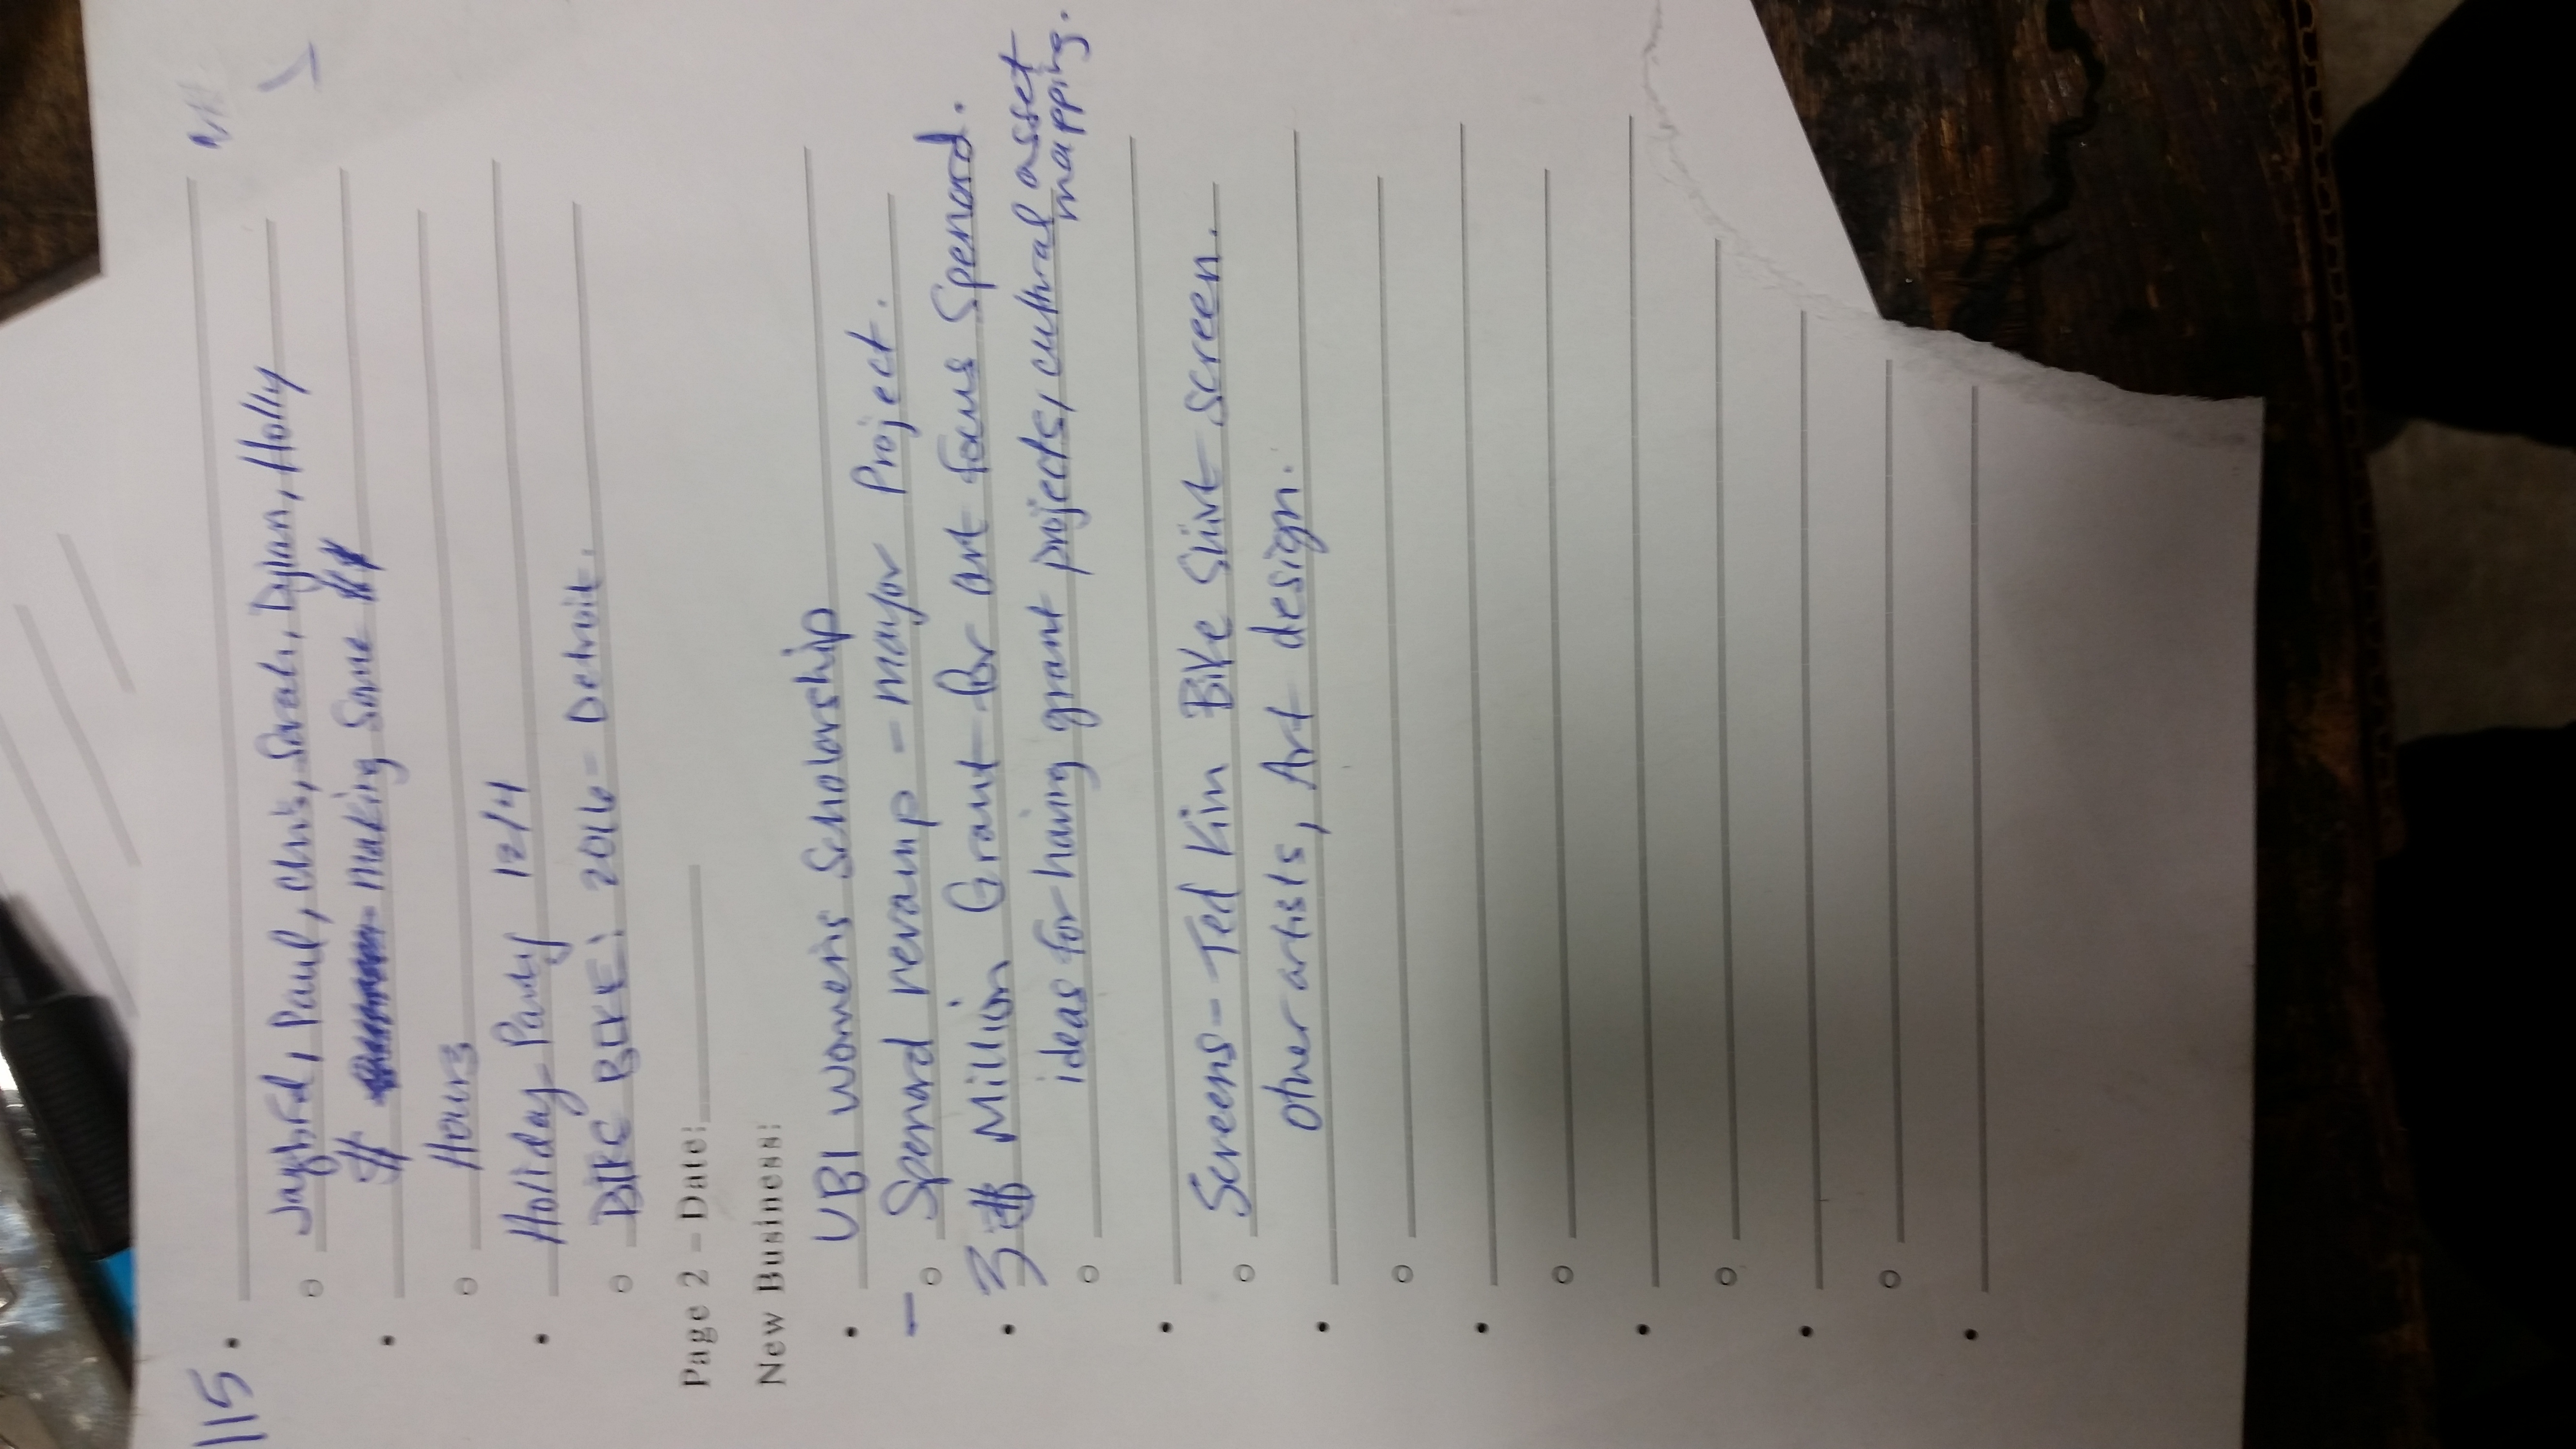 115
Jaybird, Paul, Chris, Sarah, Dylan, Holly
$ making some $$
Hours
Holiday Party 12/4
BIKE BIKE! 2016 - Detroit.
Page 2 - Date:
New Business:
UBI women's Scholarship
- Spenard revamp - mayor Project.
3 $ Million Grant for art focus Spenard.
ideas for having grant projects, cultural asset
mapping.
Screens - Ted Kim Bike Shirt screen.
other artists, Art design.